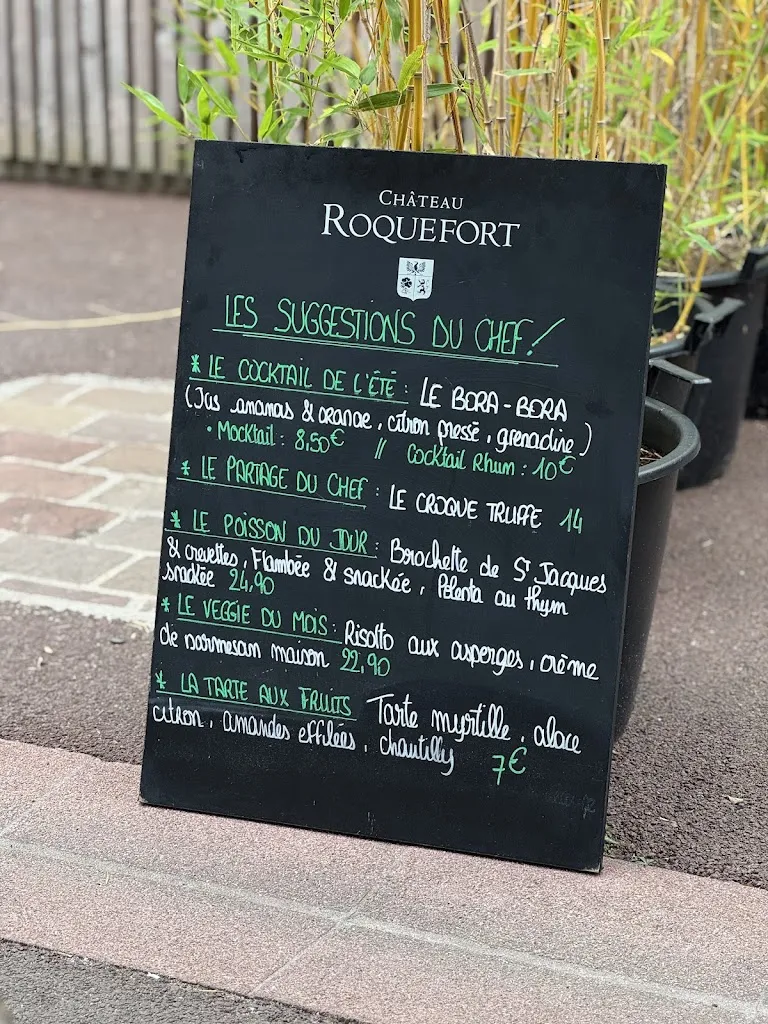 CHÂTEAU
ROQUEFORT
LES SUGGESTIONS DU CHEF!
* LE COCKTAIL DE L'ÉTÉ : LE BORA-BORA
(Jus ananas & orange, citron pressé, grenadine)
• Mocktail : 8,50€ // Cocktail Rhum : 10€
* LE PARTAGE DU CHEF : LE CROQUE TRUFFE 14
* LE POISSON DU JOUR : Brochette de St Jacques
& crevettes, Flambée & snackée, Polenta au thym
snackée 24,90
* LE VEGGIE DU MOIS : Risotto aux asperges, crème
de parmesan maison 22,90
* LA TARTE AUX FRUITS Tarte myrtille, glace
citron, amandes effilées, chantilly 7€